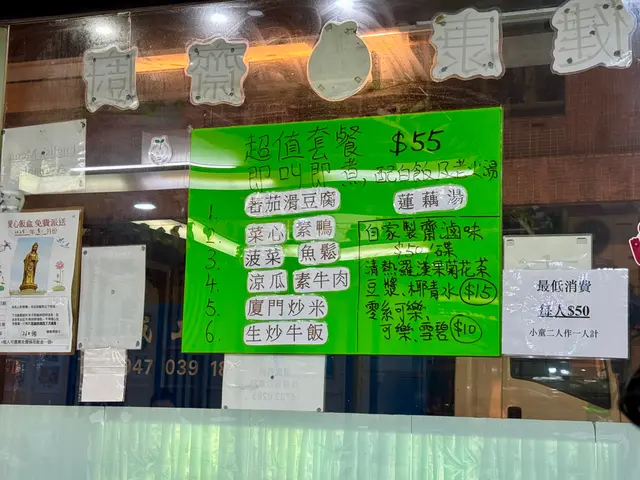 超值套餐 $55
即叫即煮,配白飯及老火湯
蓮藕湯
1. 蕃茄滑豆腐
2. 菜心素鴨
3. 菠菜魚鬆
4. 涼瓜素牛肉
5. 廈門炒米
6. 生炒牛飯
自家製齋滷味
$50/碟
清熱羅漢果菊花茶
豆漿、椰青水 $15
零系可樂,
可樂、雪碧 $10
最低消費
每人$50
小童二人作一人計
愛心飯盒免費派送
047 039 1